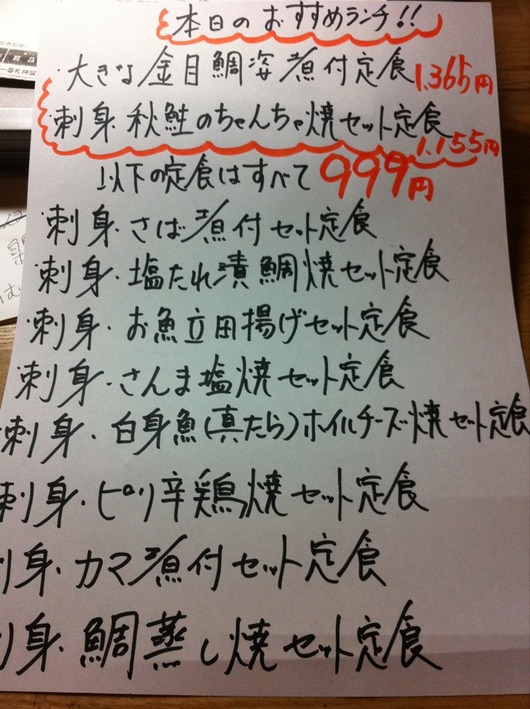 本日のおすすめランチ!!
・大きな金目鯛姿煮付定食 1,365円
・刺身・秋鮭のちゃんちゃ焼セット定食
1,155円
以下の定食はすべて 999円
・刺身・さば煮付セット定食
・刺身・塩たれ漬鯛焼セット定食
・刺身・お魚立田揚げセット定食
・刺身・さんま塩焼セット定食
・刺身・白身魚(真たら)ホイルチーズ焼セット定食
刺身・ピリ辛鶏焼セット定食
身・カマ煮付セット定食
身・鯛蒸し焼セット定食